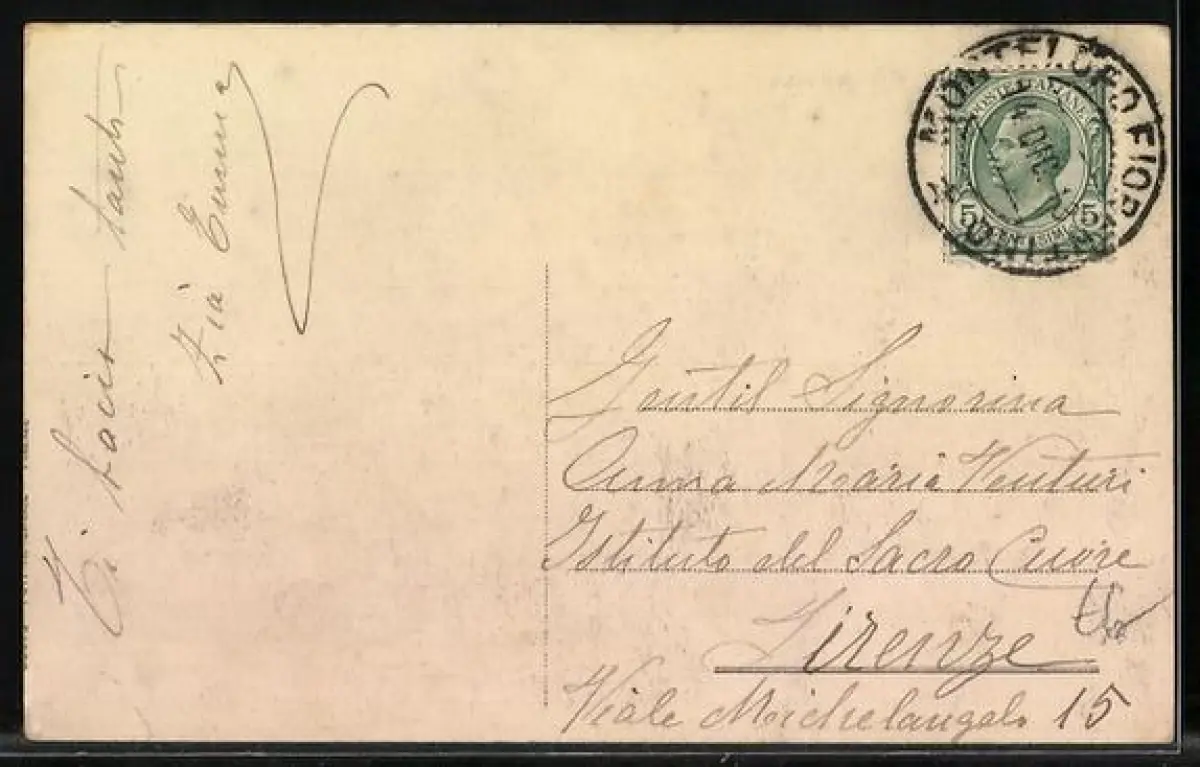 Ti bacio tanto
Zia Emma
POSTE ITALIANE
5 5
Gentil Signorina
Anna Maria Venturi
Istituto del Sacro Cuore
Firenze
Viale Michelangelo 15